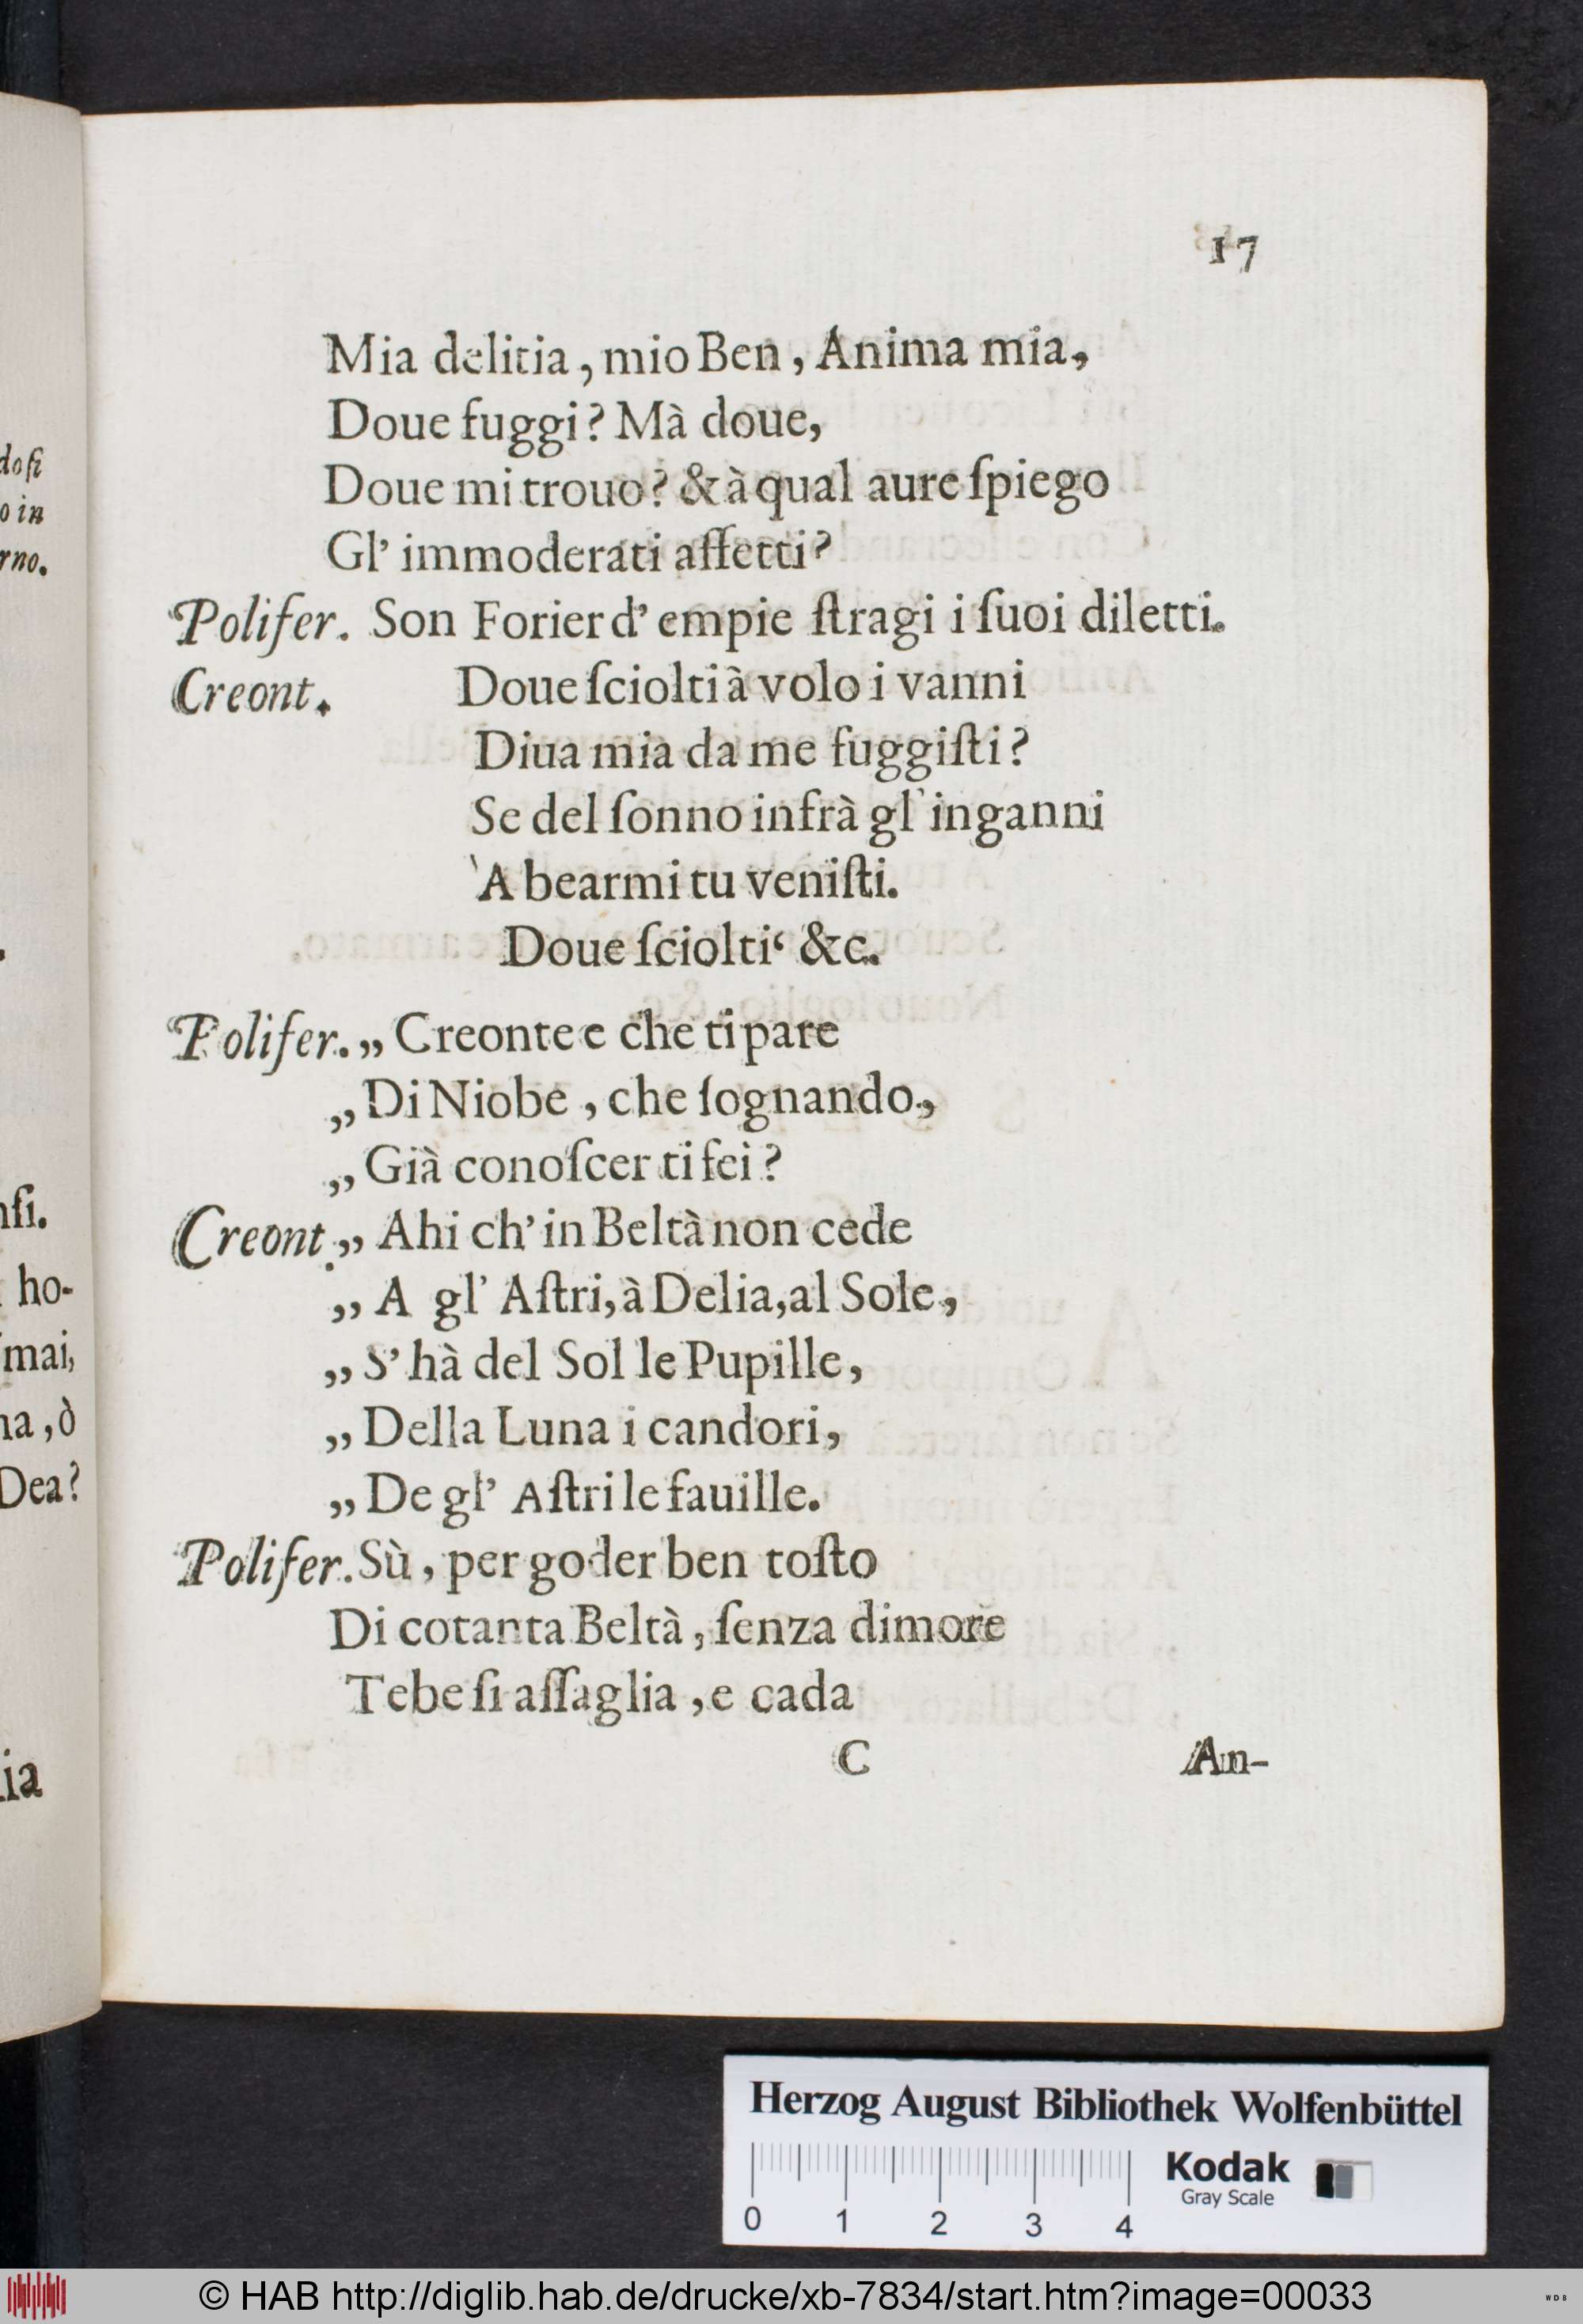 17
Mia delitia, mio Ben, Anima mia,
Doue fuggi? Mà doue,
Doue mi trouo? & à qual aure ſpiego
Gl' immoderati affetti?
Polifer. Son Forier d' empie ſtragi i ſuoi diletti.
Creont. Doue ſciolti à volo i vanni
Diua mia da me fuggiſti?
Se del ſonno infrà gl' inganni
'A bearmi tu veniſti.
Doue ſciolti‘ &c.
Polifer. „ Creonte e che ti pare
„ Di Niobe, che ſognando,
„ Già conoſcer ti fei?
Creont. „ Ahi ch' in Beltà non cede
„ A gl' Aſtri, à Delia, al Sole,
„ S' hà del Sol le Pupille,
„ Della Luna i candori,
„ De gl' Aſtri le fauille.
Polifer. Sù, per goder ben toſto
Di cotanta Beltà, ſenza dimore
Tebe ſi aſſaglia, e cada
C An-
doſi
o in
rno.
ſi.
ho-
mai,
a, ò
Dea?
ia
Herzog August Bibliothek Wolfenbüttel
Kodak
Gray Scale
0 1 2 3 4
© HAB http://diglib.hab.de/drucke/xb-7834/start.htm?image=00033
WDB